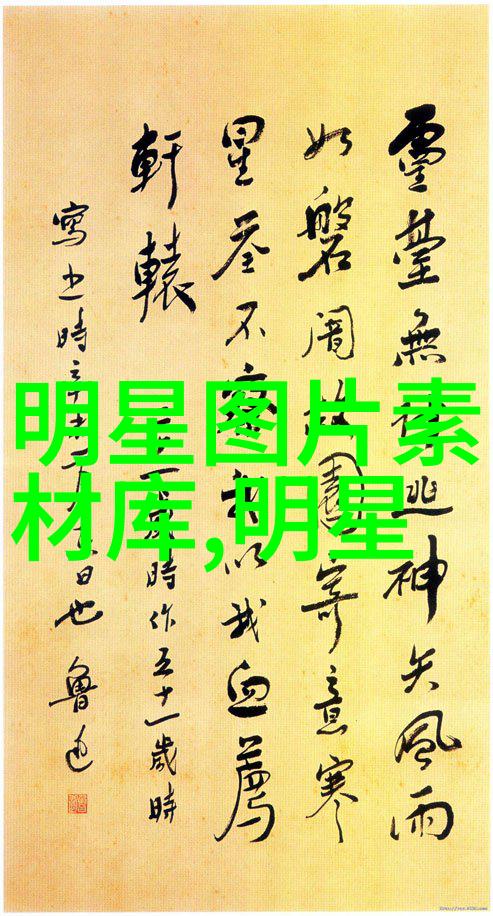 靈臺無計逃神矢風雨
如磐闇故園寄意寒
星荃不察我以我血薦
軒轅 二十一歲時作五十一歲時
寫之時辛未二月十六日也 魯迅
明星图片素
材库,明星